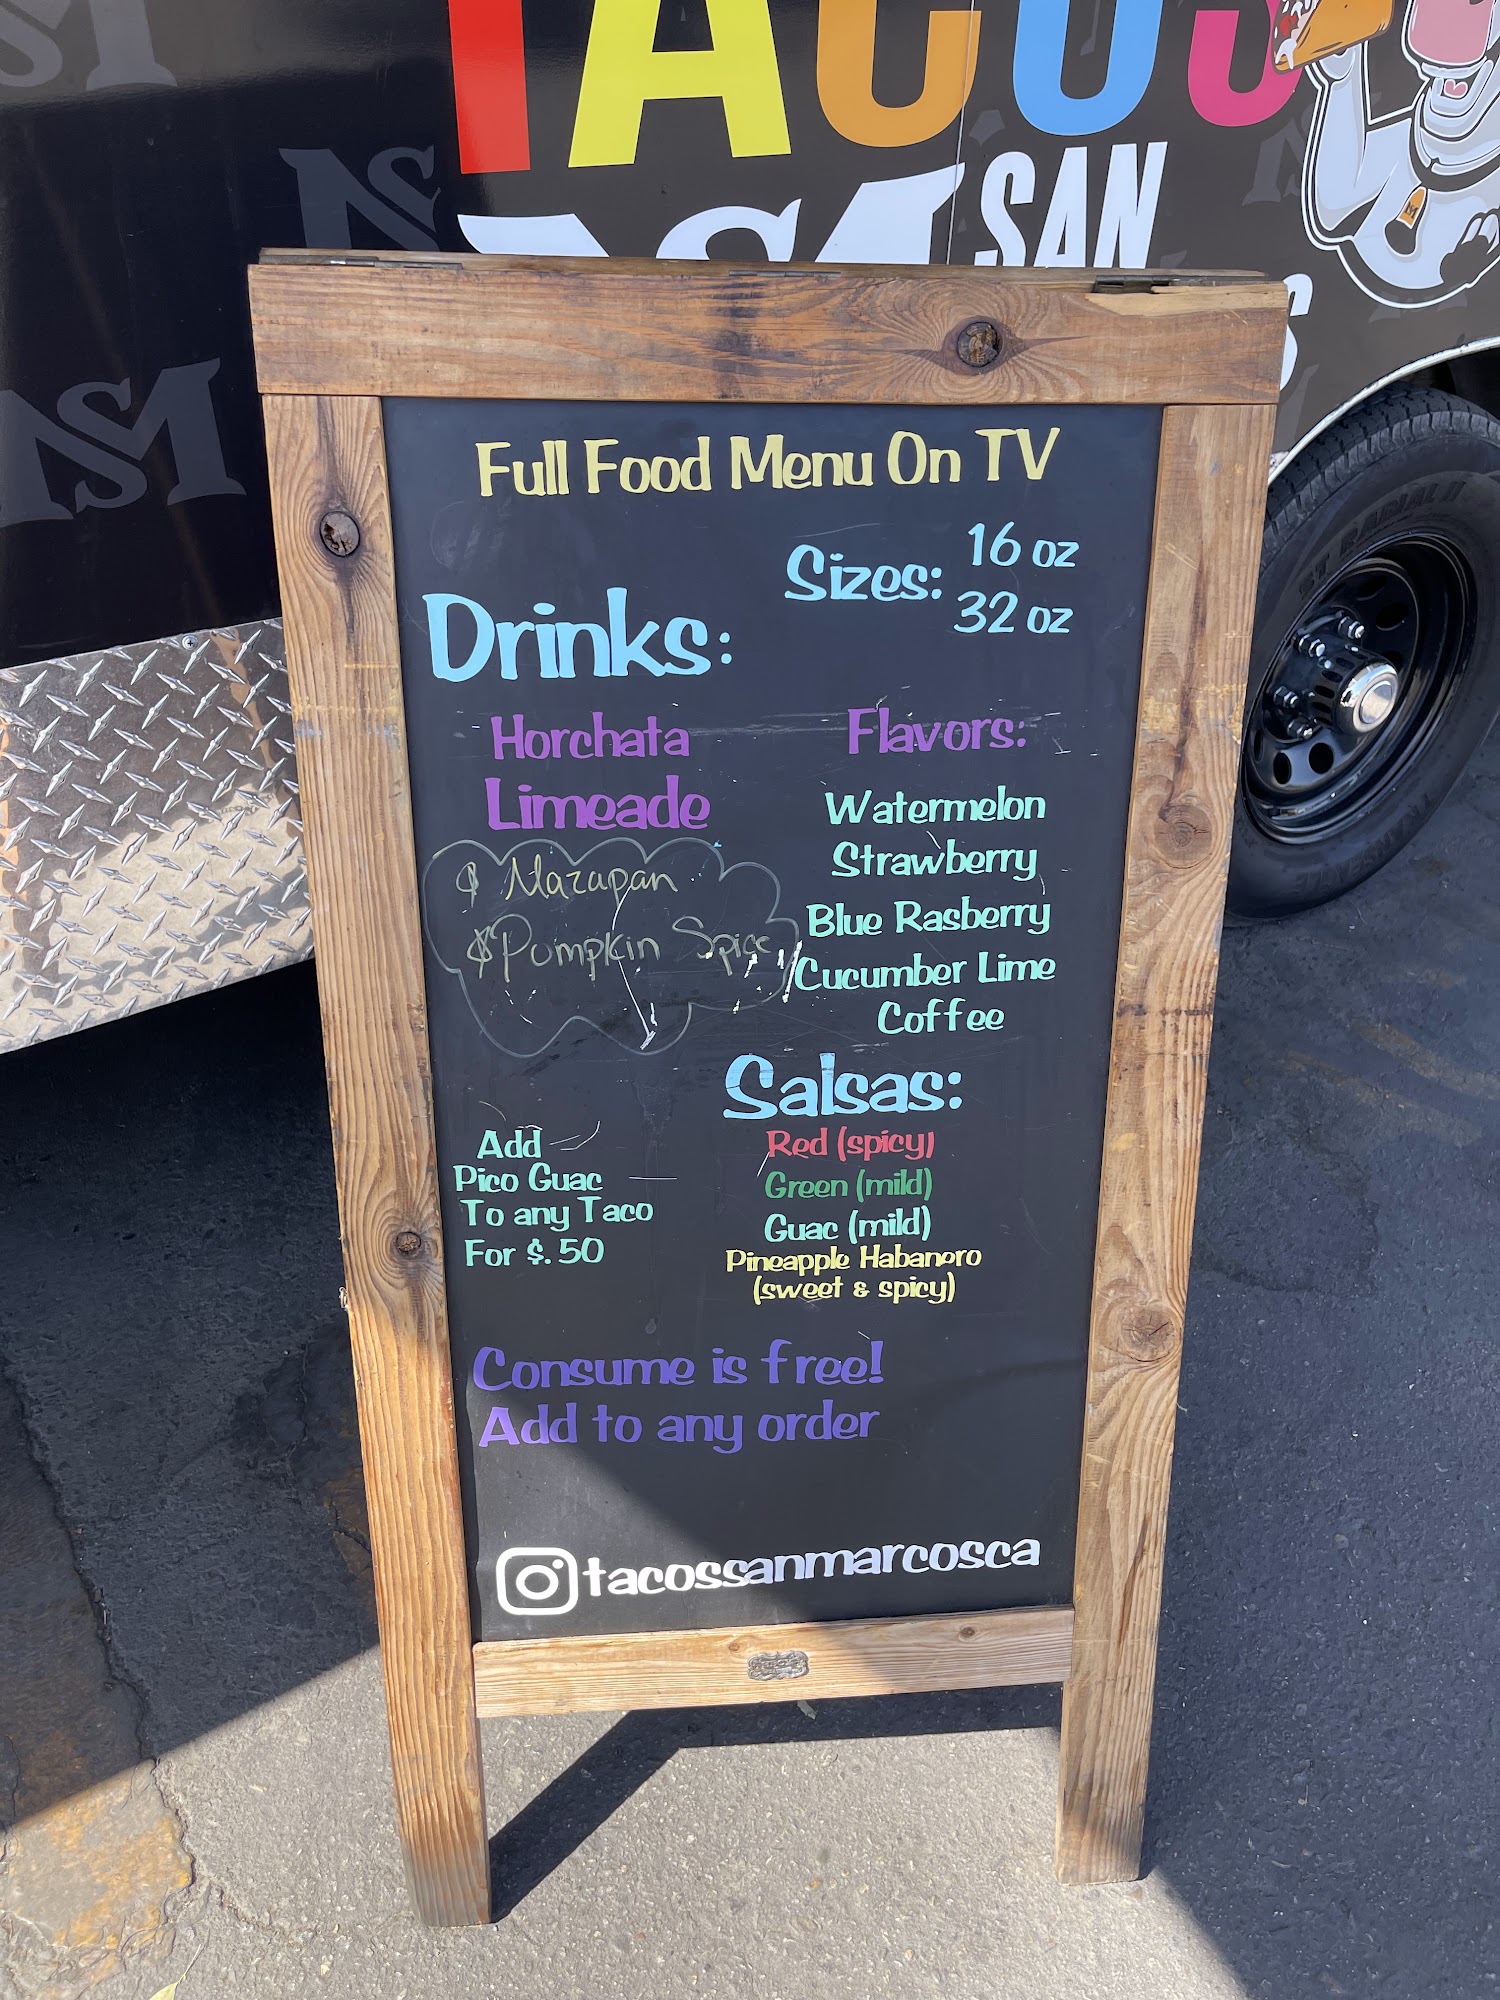 TACOS
SAN
Full Food Menu On TV
Sizes: 16 oz
32 oz
Drinks:
Horchata
Limeade
Mazapan
Pumpkin Spice
Flavors:
Watermelon
Strawberry
Blue Rasberry
Cucumber Lime
Coffee
Add
Pico Guac
To any Taco
For $.50
Salsas:
Red (spicy)
Green (mild)
Guac (mild)
Pineapple Habanero
(sweet & spicy)
Consume is free!
Add to any order
tacossanmarcosca